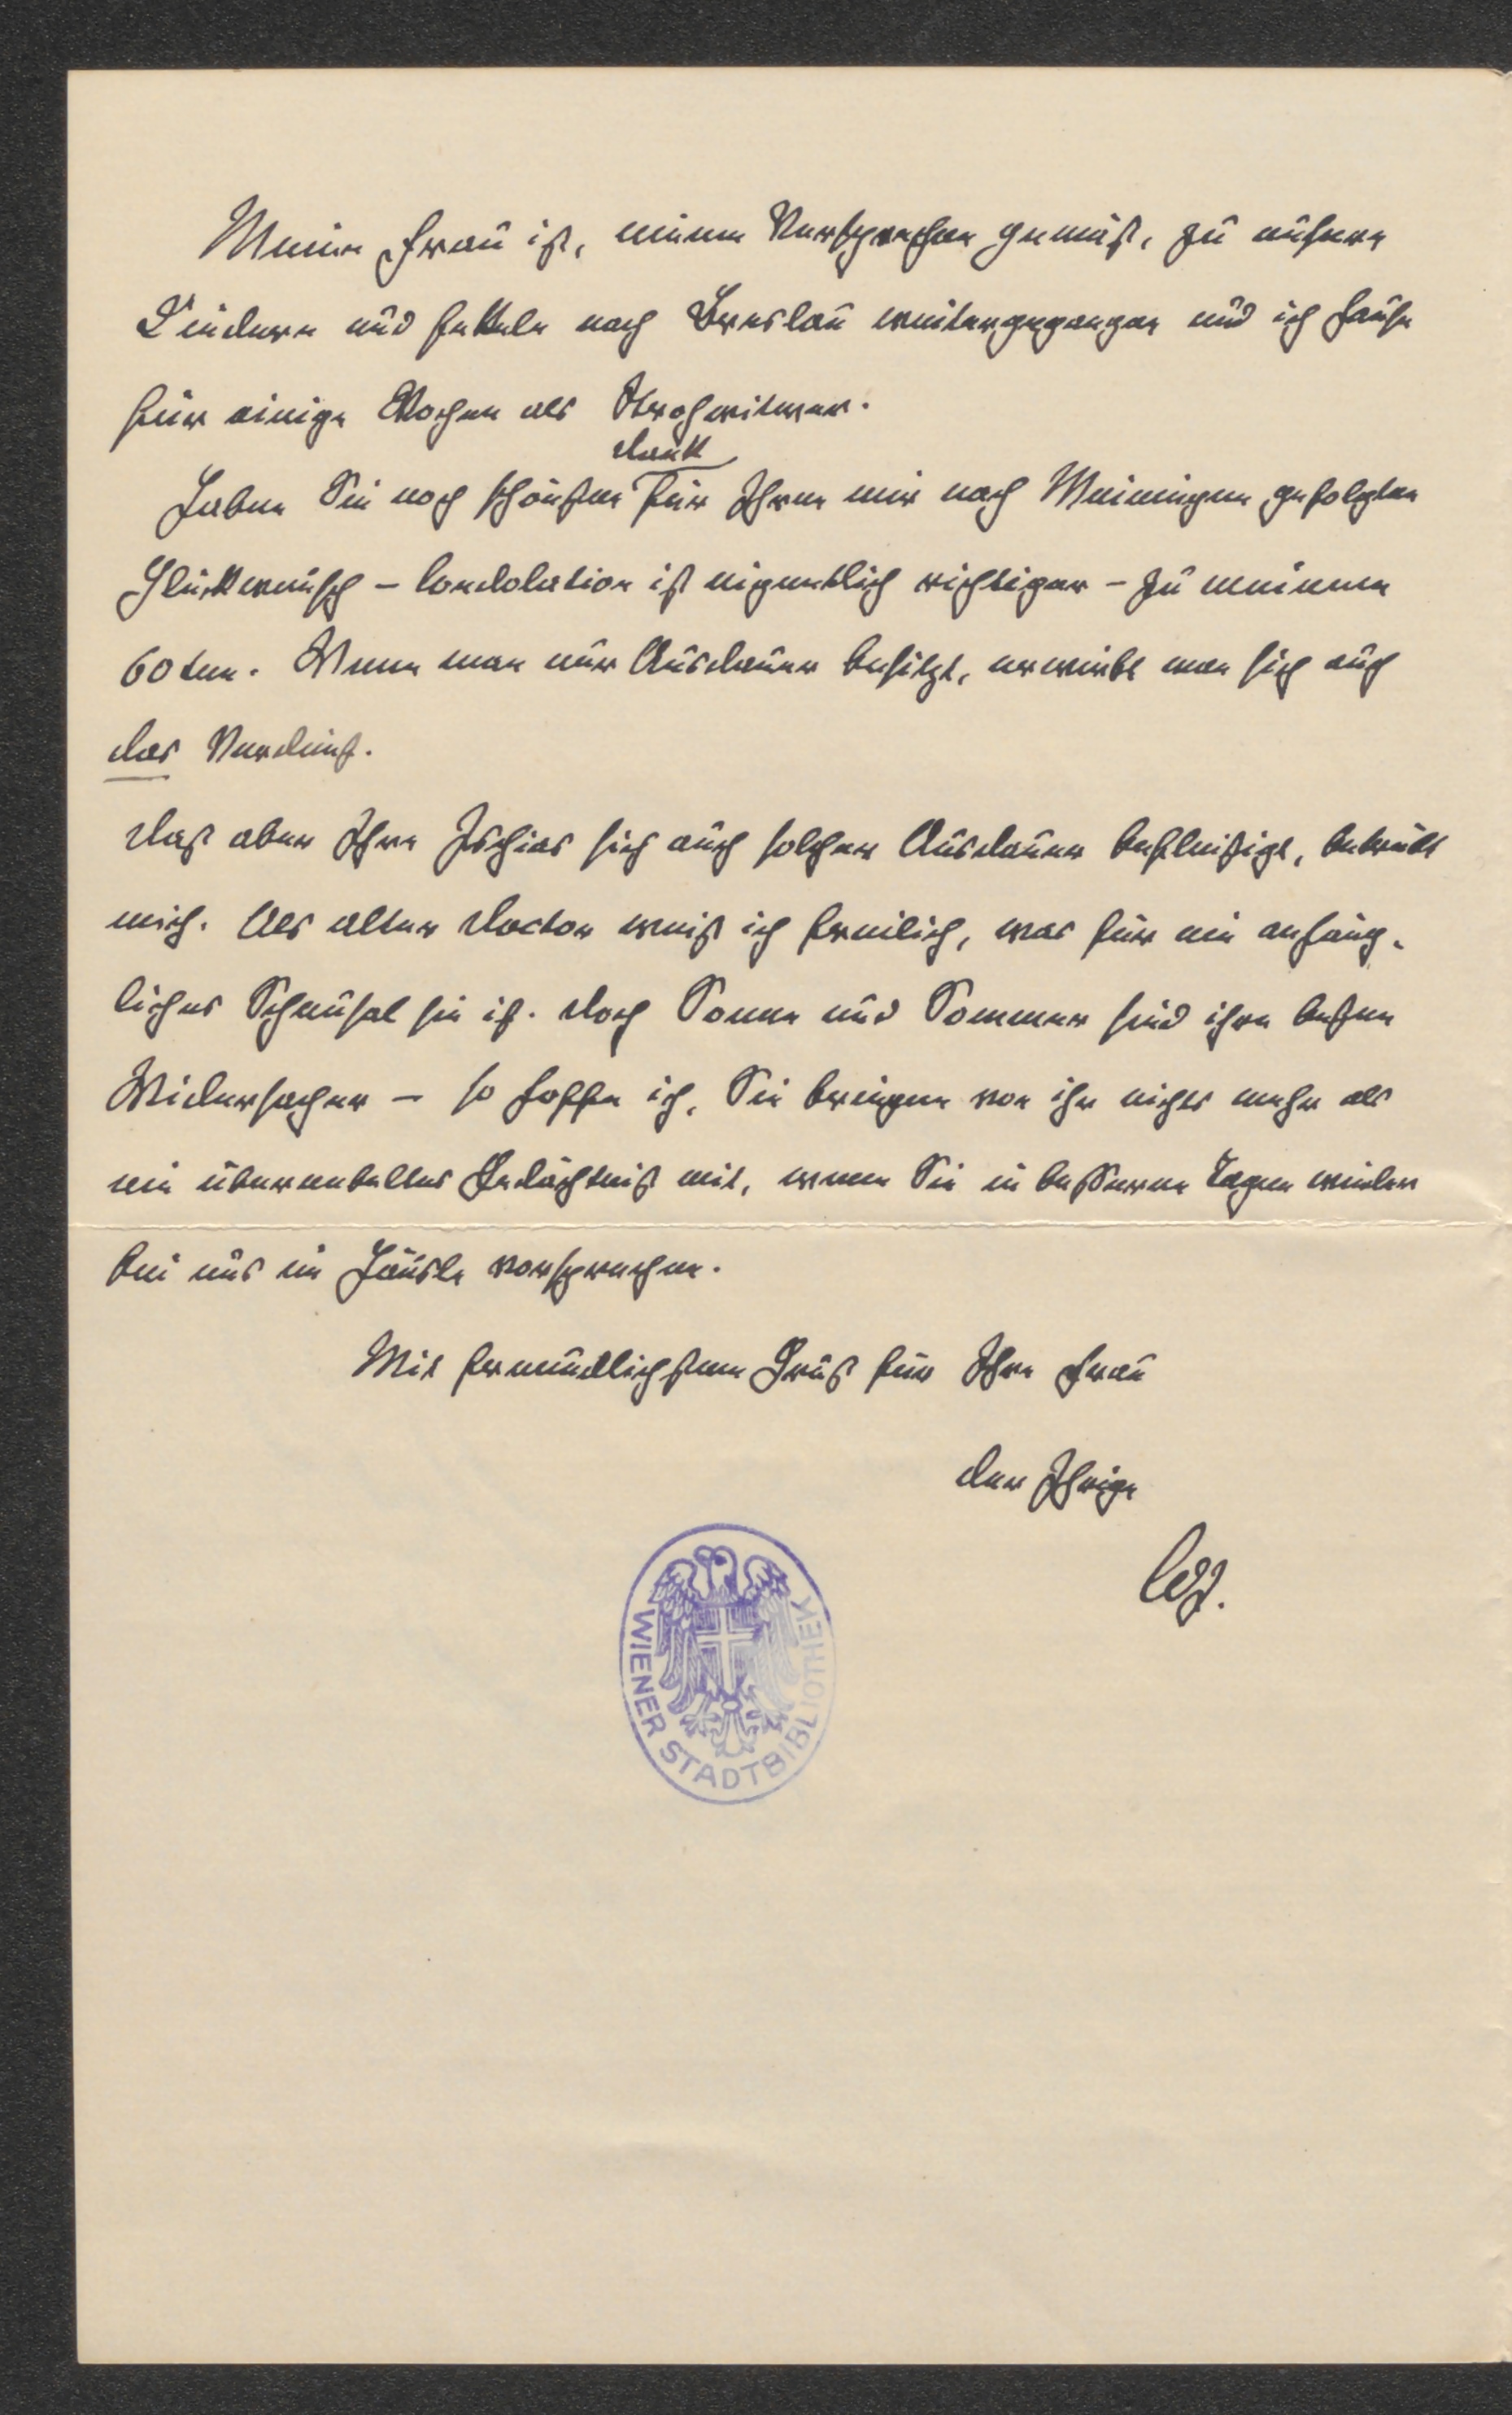 Meine Frau ist, einem Versprechen gemäß, zu unsern
Kindern und Enkeln nach Breslau weitergegangen und ich hause
für einige Wochen als Strohwitwer.
Dank
Haben Sie noch schönsten für Ihren mir nach Meiningen gefolgten
Glückwunsch – Condolation ist eigentlich richtiger – zu meinem
60ten. Wenn man nur Ausdauer besitzt, erwirbt man sich auch
das Verdienst.
Daß aber Ihre Ischias sich auch solcher Ausdauer befleißigt, betrübt
mich. Als alter Doctor weiß ich freilich, was für ein anhäng-
liches Scheusal sie ist. Doch Sonne und Sommer sind ihre besten
Widersacher – so hoffe ich, Sie bringen von ihr nichts mehr als
ein überwebeltes Gedächtniß mit, wenn Sie in besseren Tagen wieder
bei uns im Häusle vorsprechen.
Mit freundlichstem Gruß für Ihre Frau
der Ihrige
WIENER STADTBIBLIOTHEK